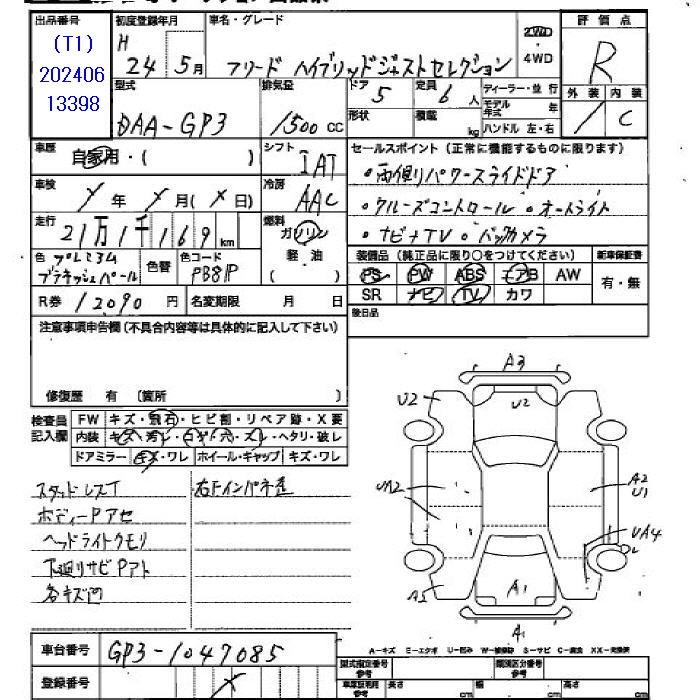 出品番号
(T1)
202406
13398
初度登録年月
H 24 年 5月
車名・グレード
フリード ハイブリッドジャストセレクション
2WD・4WD
評価点
R
型式
DAA-GP3
排気量
1500 cc
ドア 5
形状
定員 6 人
積載 kg
ディーラー・並行
モデル年式 年
ハンドル 左・右
外装 内装
/ C
車歴
自家用・( )
シフト
IAT
セールスポイント (正常に機能するものに限ります)
・両側パワースライドドア
・クルーズコントロール ・オートライト
・ナビ+TV ・バックカメラ
車検
年 月( 日)
冷房
AAC
走行
21万1千169 km
燃料
ガソリン
軽油
( )
色 プレミアム
ブラキッシュパール
色替
色コード
PB81P
装備品 (純正品に限り○をつけてください)
新車保証書
PS PW ABS エアB AW
有・無
SR ナビ TV カワ
R券 12090 円
名変期限 月 日
後日品
注意事項申告欄 (不具合内容等は具体的に記入して下さい)
修復歴 有 〔箇所 〕
検査員記入欄
FW キズ・飛石・ヒビ割・リペア跡・X要
内装 キズ・汚レ・コゲ・穴・スレ・ヘタリ・破レ
ドアミラー キズ・ワレ ホイール・キャップ キズ・ワレ
スタッドレスT
ボディーPアセ
ヘッドライトクモリ
下廻リサビPアト
各キズ凹
右Fインパネ歪
A3
U2
U2
UA2
A2
U1
UA4
A2
A1
A1
A-キズ E-エクボ U-凹み W-補修跡 S-サビ C-腐食 XX-交換済
車台番号
GP3-1047085
登録番号
型式指定番号 参考
類別区分番号 参考
車庫証明用 参考
長さ cm
幅 cm
高さ cm